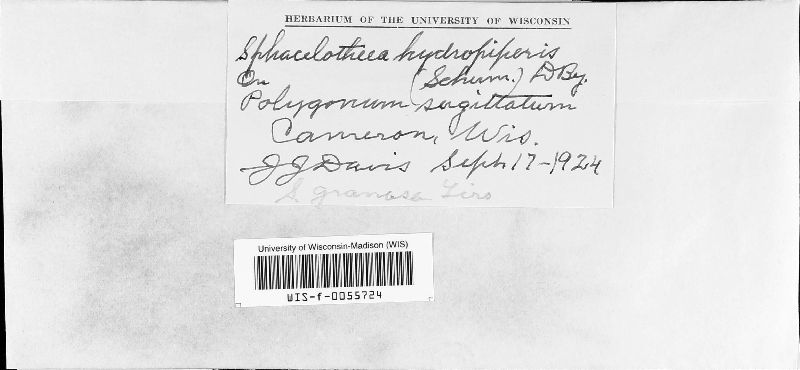 HERBARIUM OF THE UNIVERSITY OF WISCONSIN
Sphacelotheca hydropiperis
On (Schum.) DBy.
Polygonum sagittatum
Cameron, Wis.
JJ Davis Sept 17-1924
S. granosa Liro
University of Wisconsin-Madison (WIS)
WIS-f-0055724